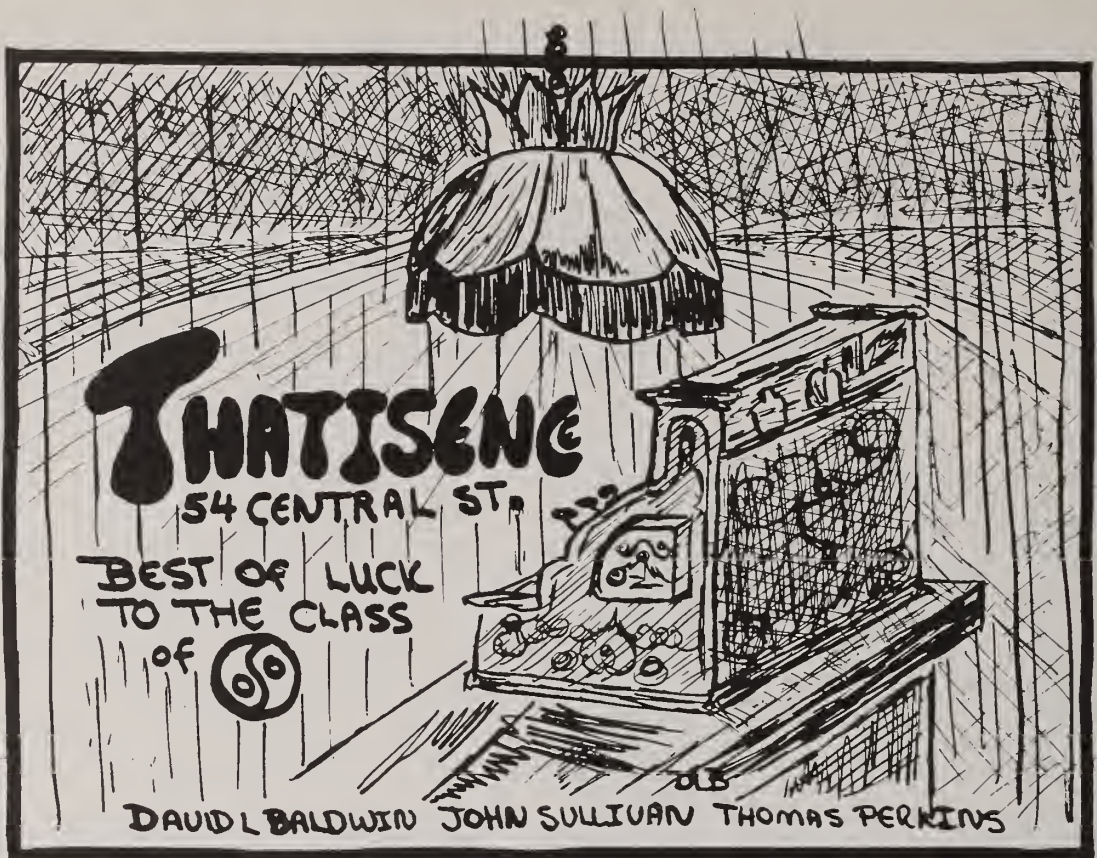 THATISENCE
54 CENTRAL ST.
BEST OF LUCK
TO THE CLASS
of
DLB
DAVID L BALDWIN JOHN SULLIVAN THOMAS PERKINS